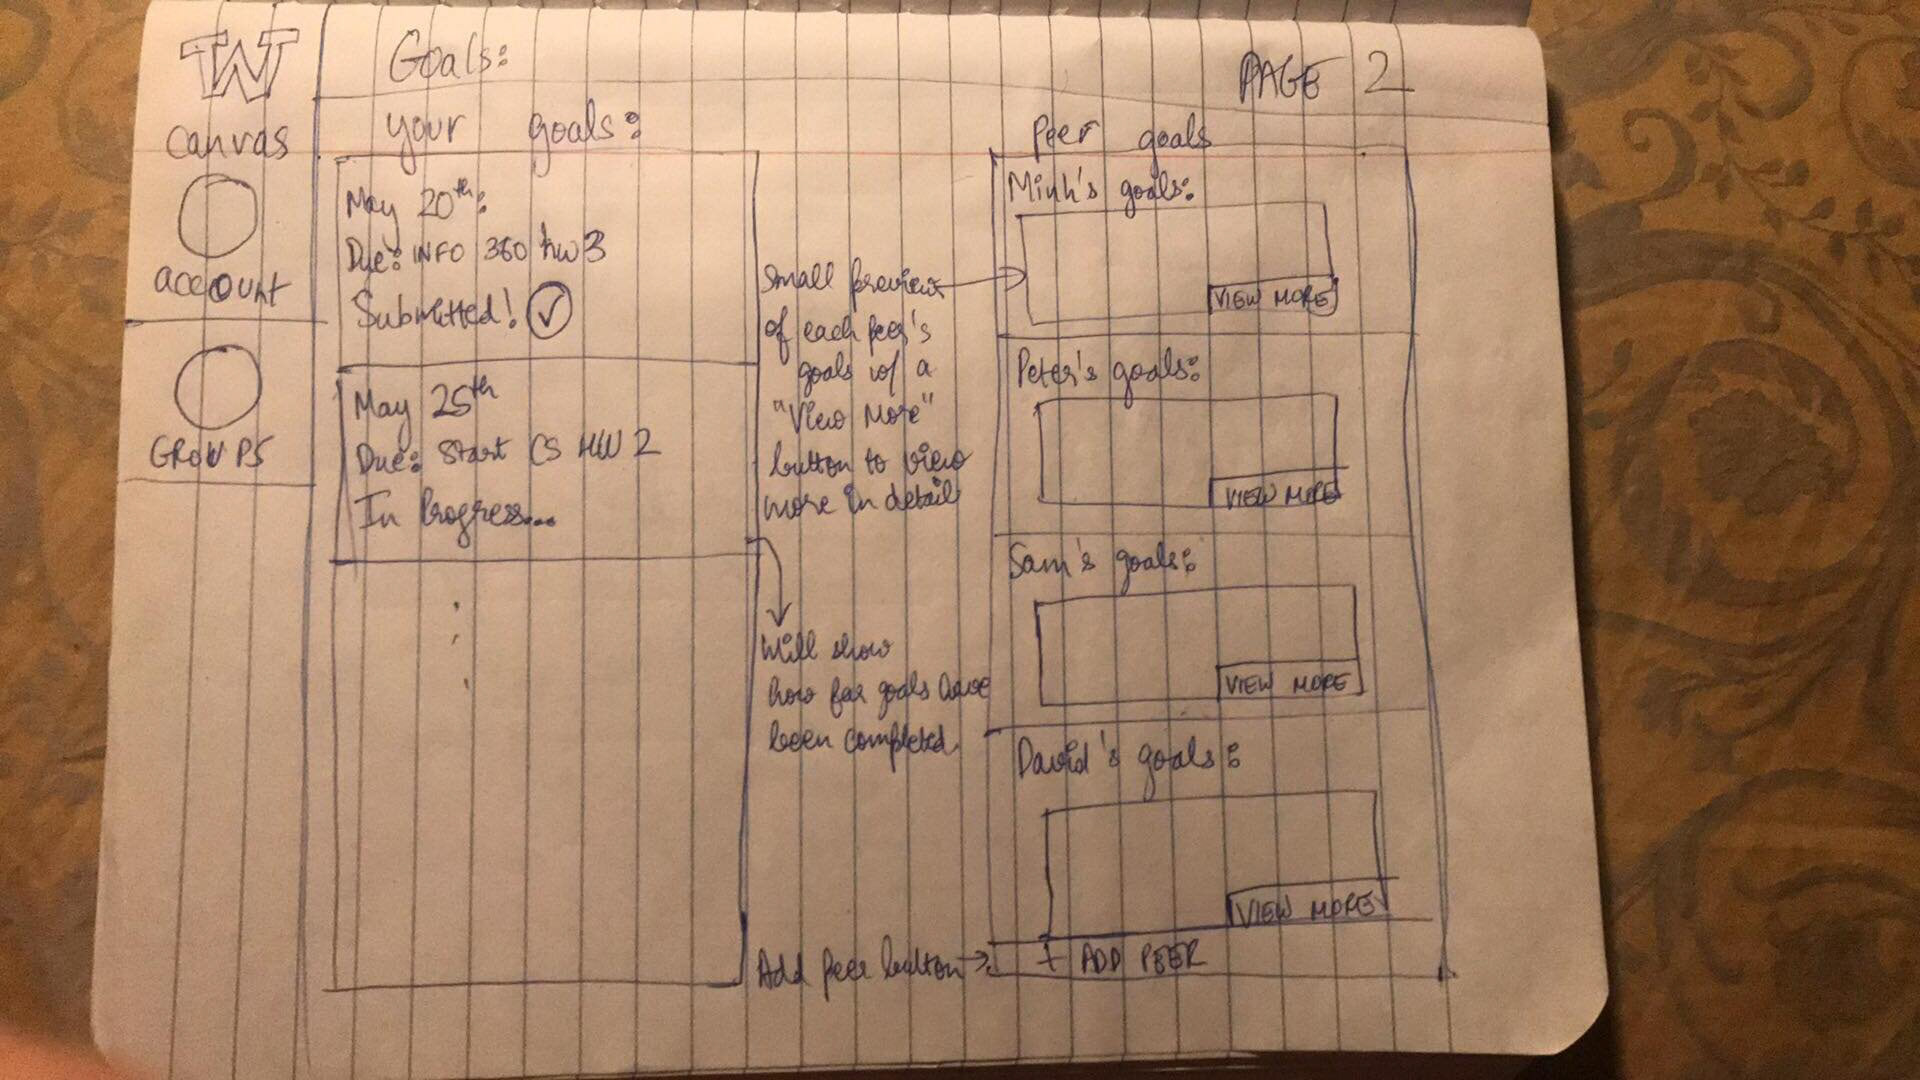 W
Canvas
account
GROUPS
Goals:
PAGE 2
your goals:
May 20th:
Due: INFO 360 hw 3
Submitted!
May 25th
Due: Start CS HW 2
In Progress...
Small preview
of each peer's
goals w/ a
"View More"
button to view
more in detail
Will show
how far goals have
been completed
Add peer button
Peer goals
Minh's goals:
VIEW MORE
Peter's goals:
VIEW MORE
Sam's goals:
VIEW MORE
David's goals:
VIEW MORE
+ ADD PEER